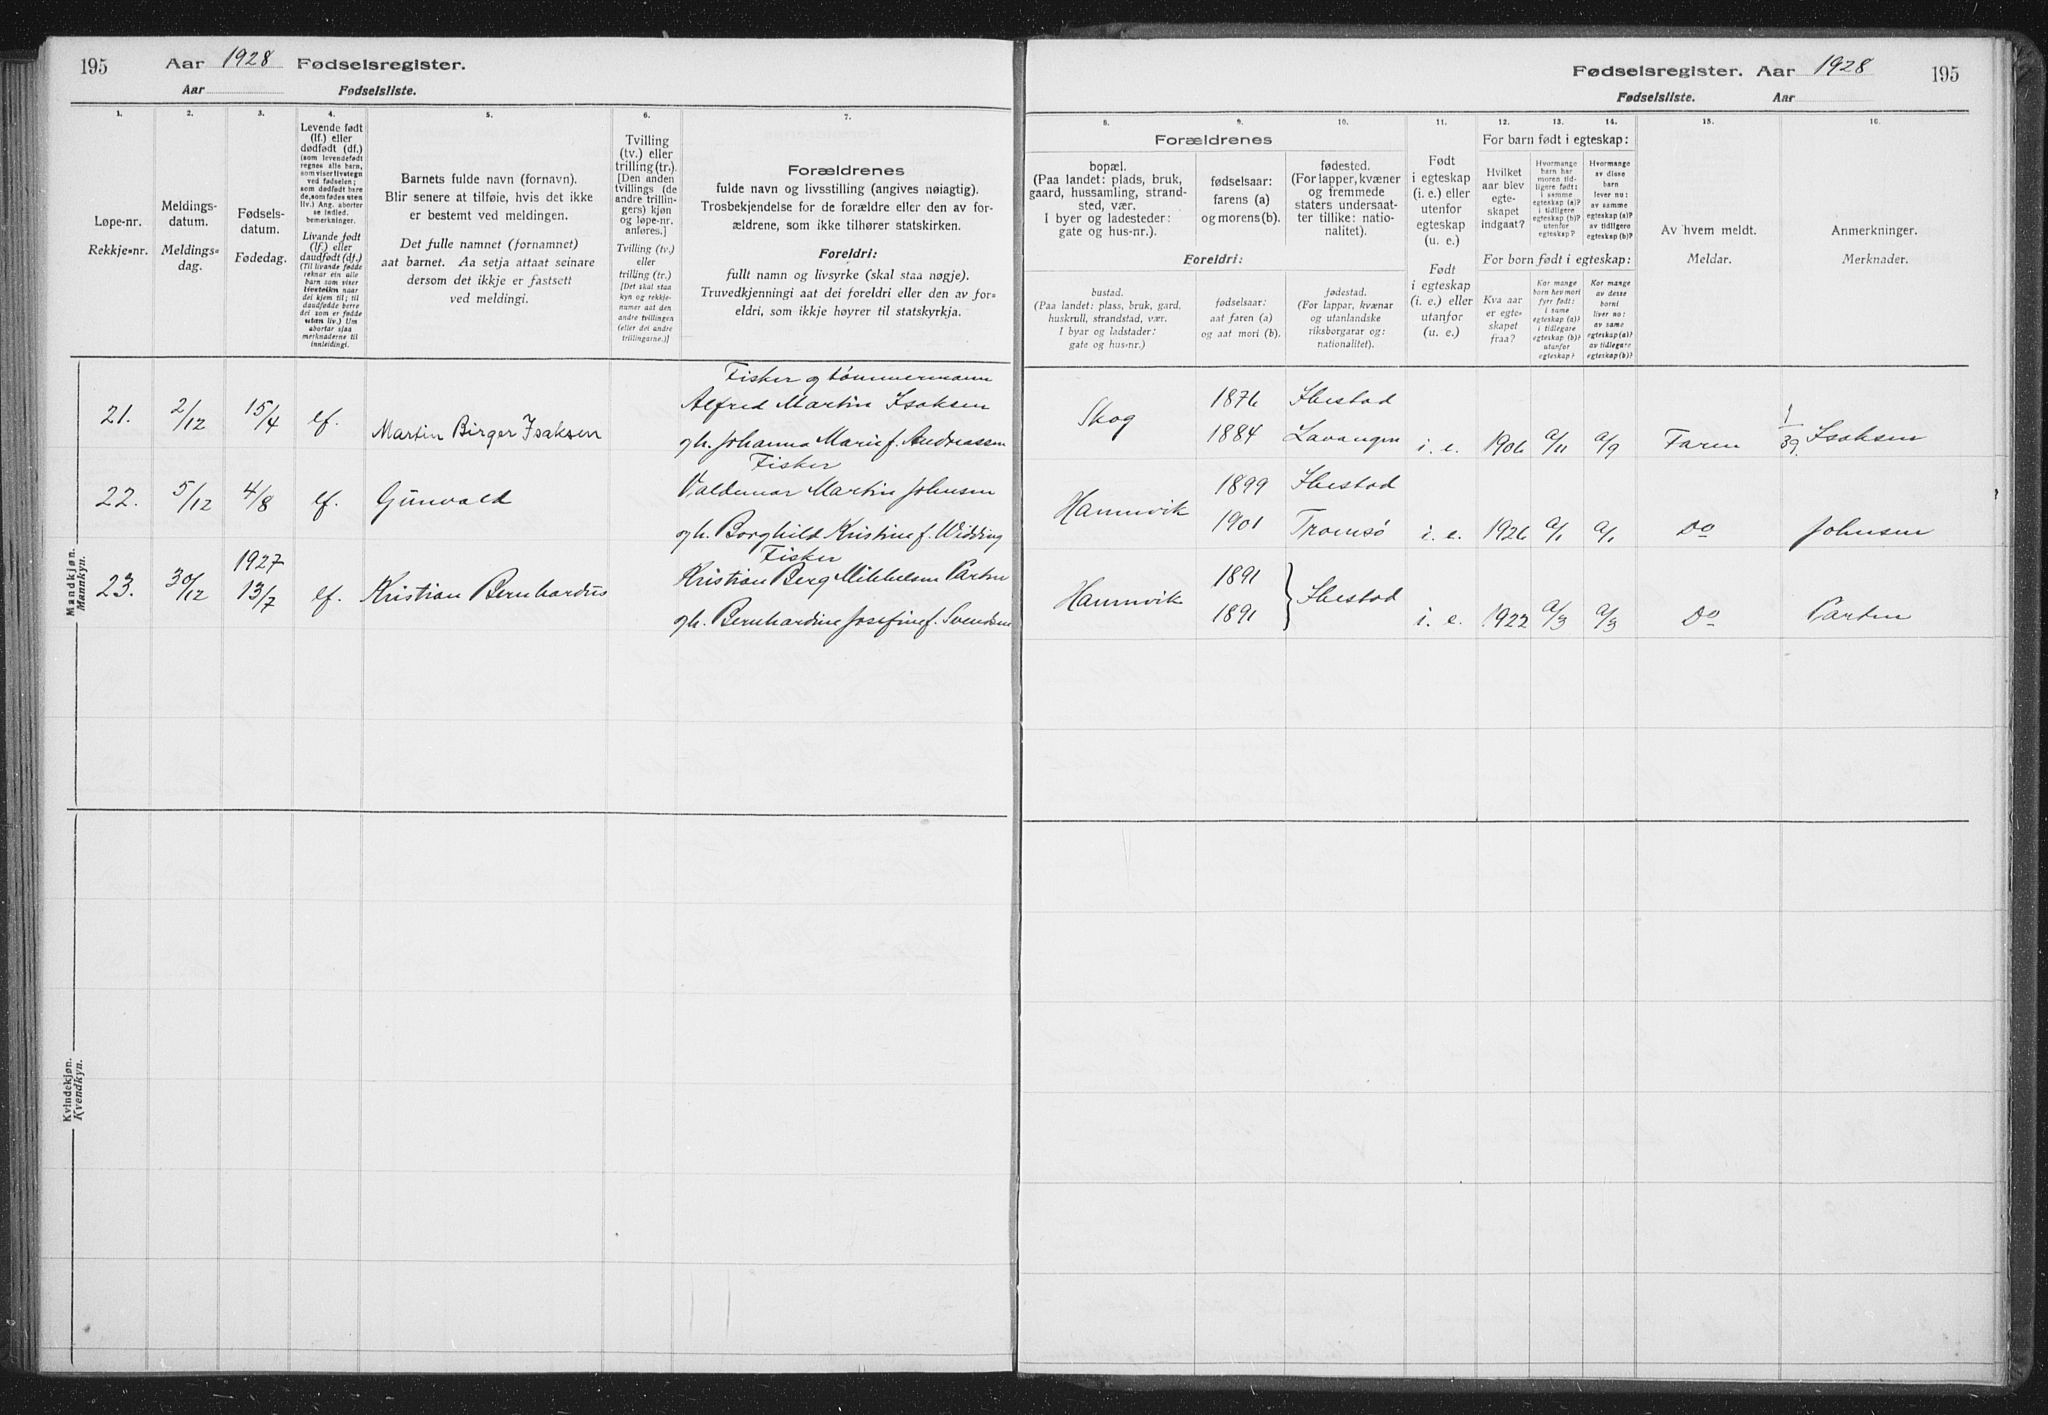 195 Aar 1928 Fødselsregister.
Aar Fødselsliste.
1. 2. 3. 4. 5. 6. 7.
Løpe-nr.
Rekkje-nr.
Meldings-
datum.
Meldings-
dag.
Fødsels-
datum.
Fødedag.
Levende født
(lf.) eller
dødfødt (df.)
(som levendefødt
regnes alle barn,
som viser livstegn
ved fødselen;
som dødfødt bare
de, som fødes uten
liv.) Ang. aborter
se indled.
bemerkninger.
Livande født
(lf.) eller
daudfødt (df.)
(Til livande fødde
reknar ein alle
barn som viser
livsteikn naar
dei kjem til; til
daudfødde berre
dei som er fødde
utan liv.) Um
abortar sjaa
merknaderne til
innleidingi.
Barnets fulde navn (fornavn).
Blir senere at tilføie, hvis det ikke
er bestemt ved meldingen.
Det fulle namnet (fornamnet)
aat barnet. Aa setja attaat seinare
dersom det ikkje er fastsett
ved meldingi.
Tvilling
(tv.) eller
trilling (tr.).
[Den anden
tvillings (de
andre trillin-
gers) kjøn
og løpe-nr.
anføres.]
Tvilling (tv.)
eller
trilling (tr.)
[Det skal staa
kyn og rekkje-
numer aat den
andre tvillingen
(eller dei andre
trillingarne.)]
Forældrenes
fulde navn og livsstilling (angives nøiagtig).
Trosbekjendelse for de forældre eller den av for-
ældrene, som ikke tilhører statskirken.
Foreldri:
fullt namn og livsyrke (skal staa nøgje).
Truvedkjenningi aat dei foreldri eller den av for-
eldri, som ikkje høyrer til statskyrkja.
Mandkjøn.
Mannkyn.
Fisker og tømmermann
21. 2/12 15/4 lf. Martin Birger Isaksen Alfred Martin Isaksen
og h. Johanna Marie f. Andreassen
Fisker
22. 5/12 4/8 lf. Gunvald Valdemar Martin Johnsen
og h. Borghild Kristine f. Widding
1927 Fisker
23. 30/12 13/7 lf. Kristian Bernhardus Kristian Berg Mikkelsen Parten
og h. Bernhardine Josefine f. Svendsen
Kvindekjøn.
Kvendkyn.
Fødselsregister. Aar 1928 195
Fødselsliste. Aar
8. 9. 10. 11. 12. 13. 14. 15. 16.
Forældrenes
bopæl.
(Paa landet: plads, bruk,
gaard, hussamling, strand-
sted, vær.
I byer og ladesteder:
gate og hus-nr.).
fødselsaar:
farens (a)
og morens (b).
fødested.
(For lapper, kvæner
og fremmede
staters undersaat-
ter tillike: natio-
nalitet).
Foreldri:
bustad.
(Paa landet: plass, bruk, gard,
huskrull, strandstad, vær.
I byar og ladstader:
gate og hus-nr.)
fødselsaar:
aat faren (a)
og aat mori (b).
fødestad.
(For lappar, kvænar
og utanlandske
riksborgarar og:
nationalitet).
Født
i egteskap
(i. e.) eller
utenfor
egteskap
(u. e.)
Født
i egteskap
(i. e.) eller
utanfor
(u. e.)
For barn født i egteskap:
Hvilket
aar blev
egte-
skapet
indgaat?
Hvormange
barn har
moren tid-
ligere født:
i samme
egteskap (a)?
i tidligere
egteskap (b)?
utenfor
egteskap?
Hvormange
av disse
barn
lever nu:
av samme
egteskap (a)?
av tidligere
egteskap (b)?
For born født i egteskap:
Kva aar
er egte-
skapet
fraa?
Kor mange
born hev mori
fyrr født:
i same
egteskap (a)?
i tidlegare
egteskap (b)?
utanfor
egteskap?
Kor mange
av desse
borni
liver no:
av same
egteskap (a)?
av tidlegare
egteskap (b)?
Av hvem meldt.
Meldar.
Anmerkninger.
Merknader.
1876 Ibestad
Skog 1884 Lavangen i. e. 1906 a/11 a/9 Faren 1/39. Isaksen
1899 Ibestad
Hamnvik 1901 Tromsø i. e. 1926 a/1 a/1 Do Johnsen
1891
Hamnvik 1891 } Ibestad i. e. 1922 a/3 a/3 Do Parten